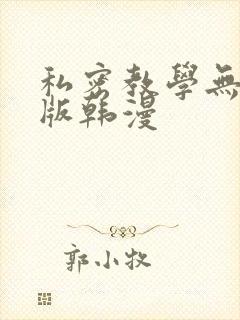 私密教學無
版韩漫
郭小牧